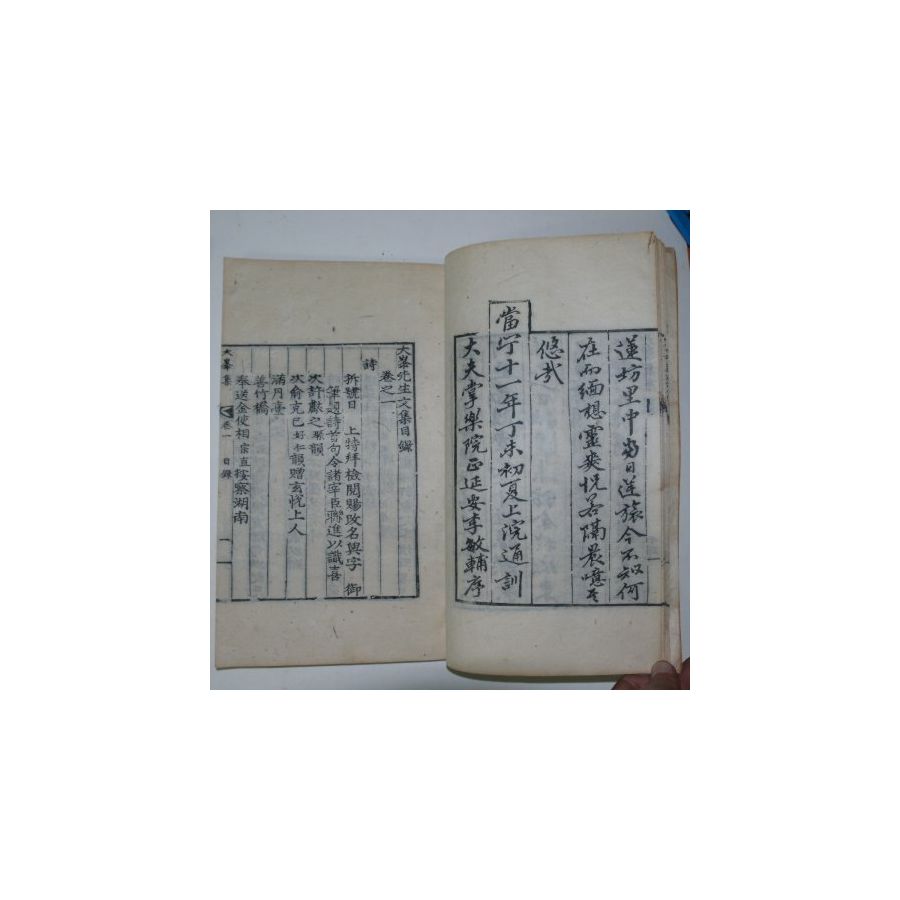 蓮坊里中當日逆旅今不知何
在而緬想靈爽怳若隔晨噫
悠哉
當宁十一年丁未初夏上浣通訓
大夫掌樂院正延安李敏輔序
大峯先生文集目錄
卷之一
詩
拆號日 上特拜檢閱賜改名與字 御
筆題詩首句令諸宰臣聯進以識喜
次許獻之琛韻
次俞克己好仁韻贈玄悅上人
滿月臺
善竹橋
奉送金使相宗直按察湖南
大峯集 卷一 目錄 一